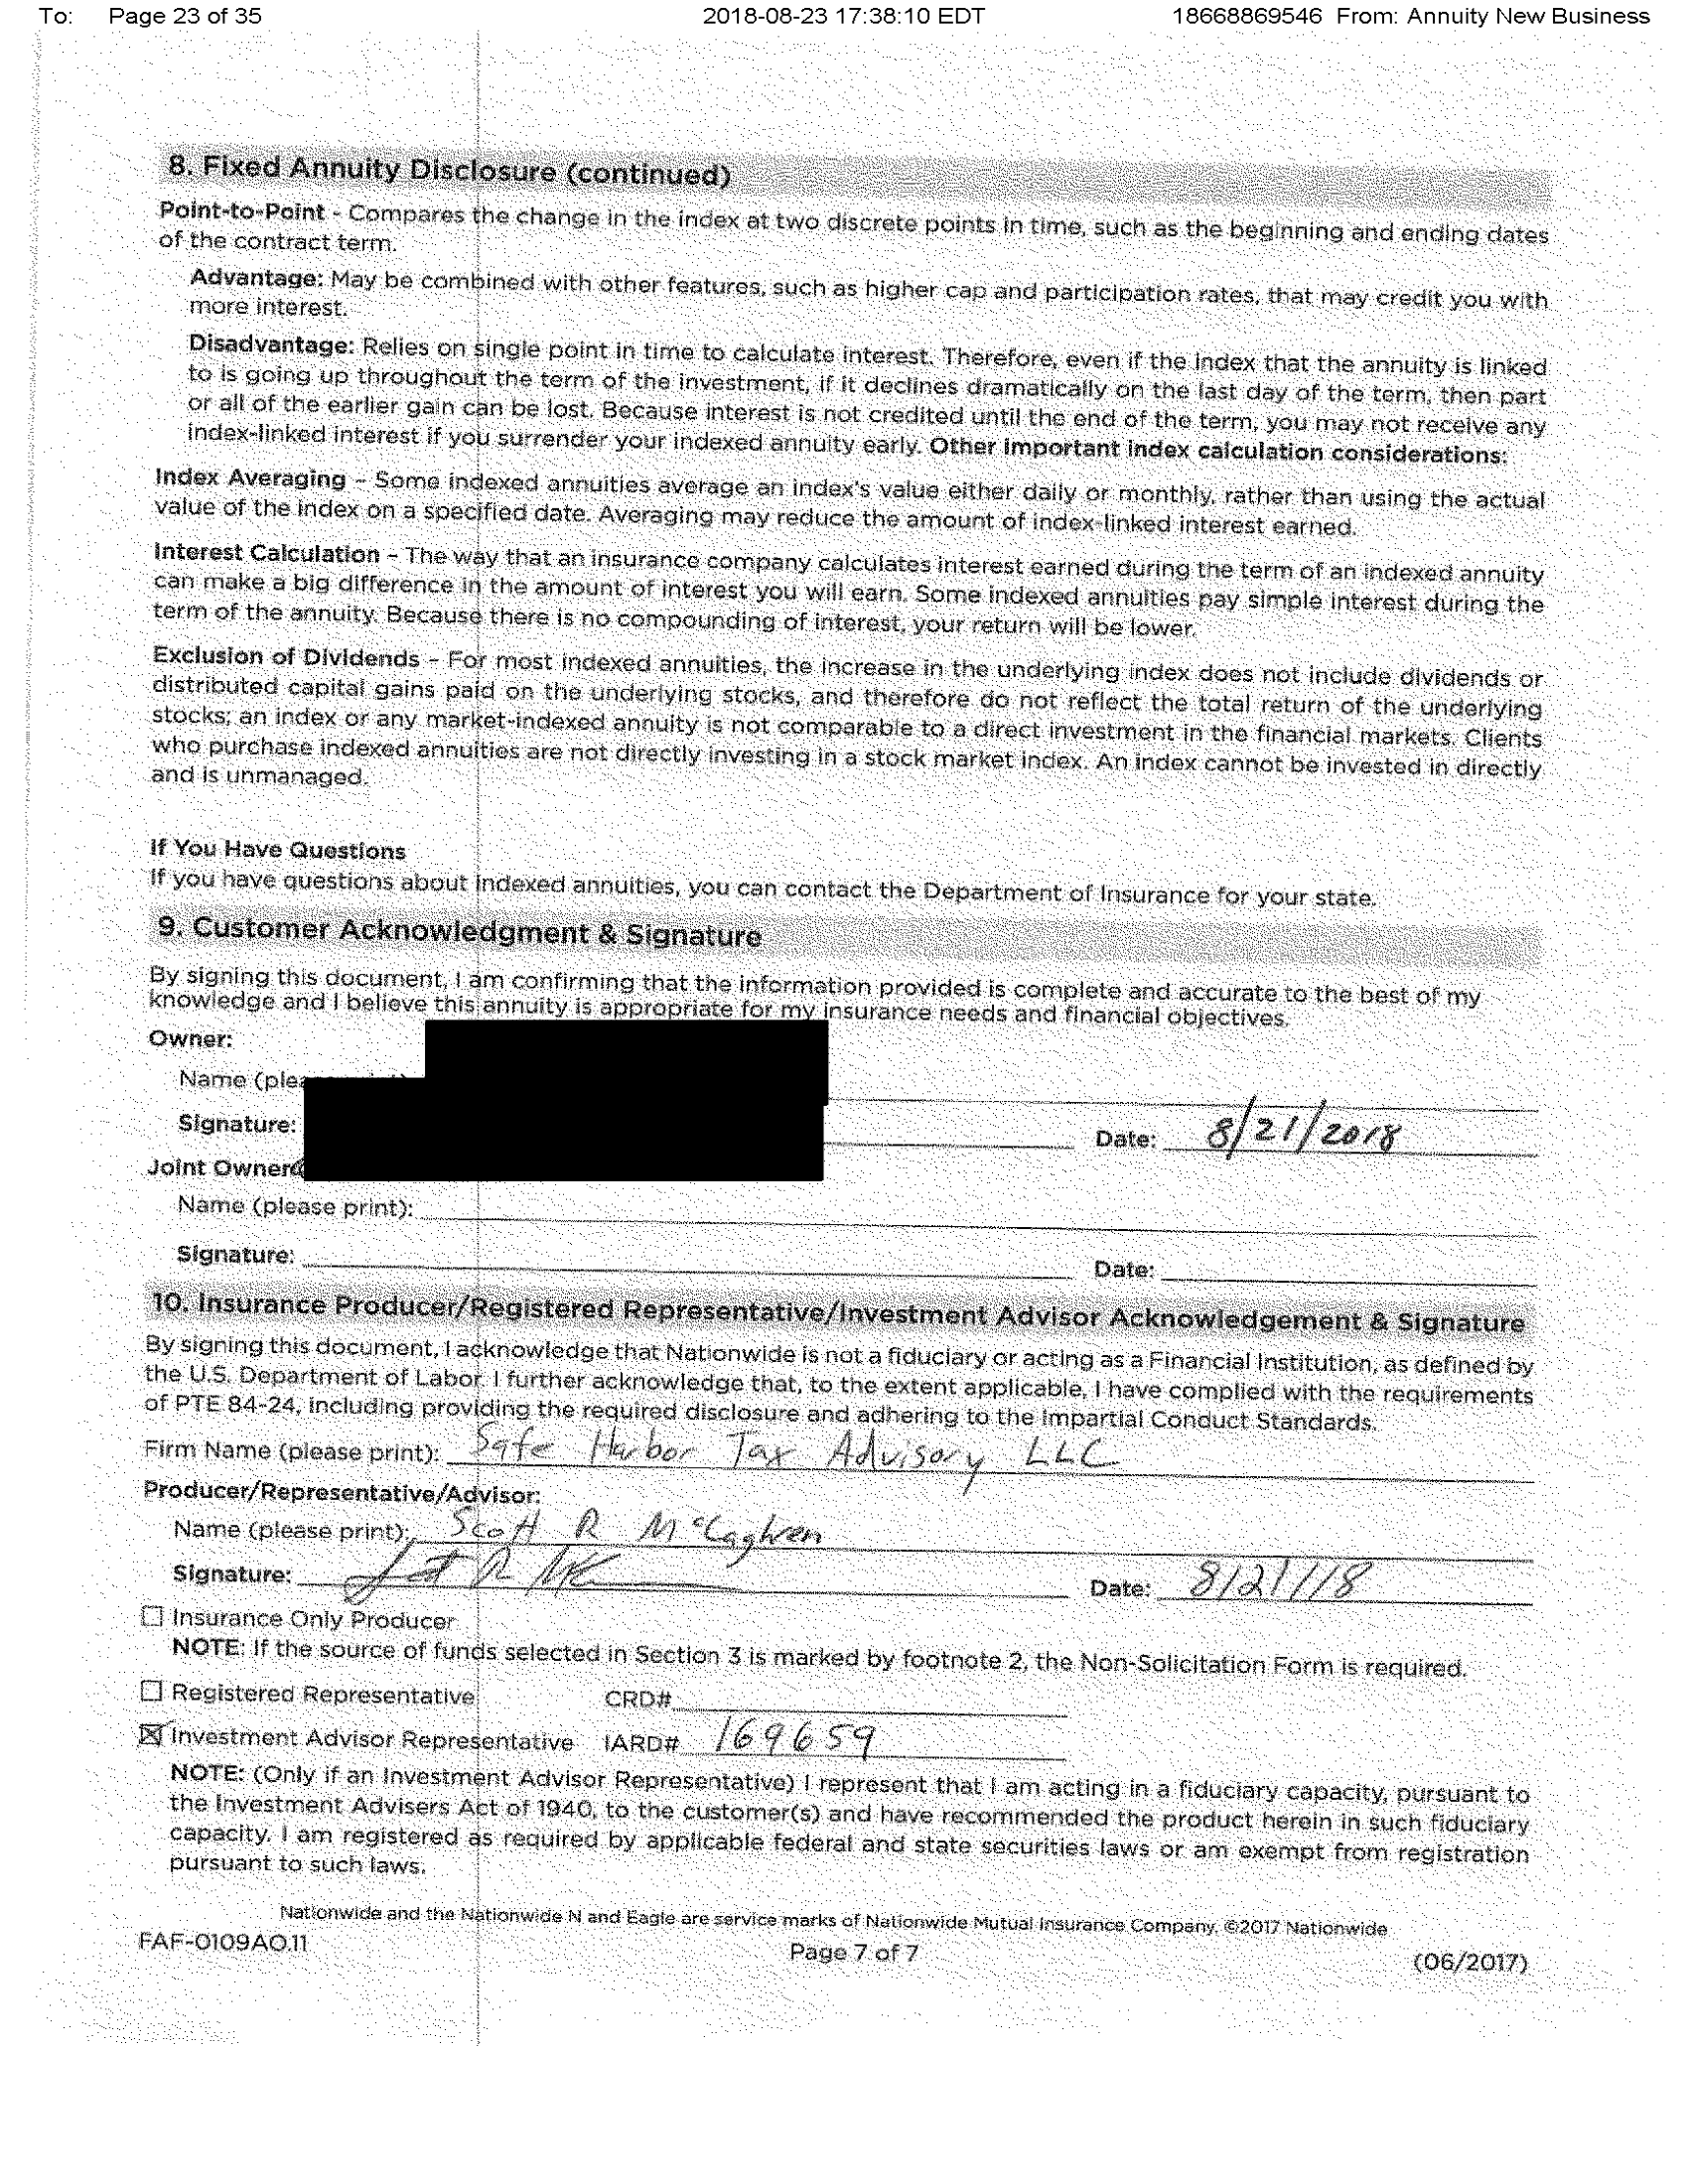 To: Page 23 of 35 2018-08-23 17:38:10 EDT 18668869546 From: Annuity New Business
8. Fixed Annuity Disclosure (continued)
Point-to-Point - Compares the change in the index at two discrete points in time, such as the beginning and ending dates
of the contract term.
Advantage: May be combined with other features, such as higher cap and participation rates, that may credit you with
more interest.
Disadvantage: Relies on single point in time to calculate interest. Therefore, even if the index that the annuity is linked
to is going up throughout the term of the investment, if it declines dramatically on the last day of the term, then part
or all of the earlier gain can be lost. Because interest is not credited until the end of the term, you may not receive any
index-linked interest if you surrender your indexed annuity early. Other important index calculation considerations:
Index Averaging – Some indexed annuities average an index's value either daily or monthly, rather than using the actual
value of the index on a specified date. Averaging may reduce the amount of index-linked interest earned.
Interest Calculation – The way that an insurance company calculates interest earned during the term of an indexed annuity
can make a big difference in the amount of interest you will earn. Some indexed annuities pay simple interest during the
term of the annuity. Because there is no compounding of interest, your return will be lower.
Exclusion of Dividends – For most indexed annuities, the increase in the underlying index does not include dividends or
distributed capital gains paid on the underlying stocks, and therefore do not reflect the total return of the underlying
stocks; an index or any market-indexed annuity is not comparable to a direct investment in the financial markets. Clients
who purchase indexed annuities are not directly investing in a stock market index. An index cannot be invested in directly
and is unmanaged.
If You Have Questions
If you have questions about indexed annuities, you can contact the Department of Insurance for your state.
9. Customer Acknowledgment & Signature
By signing this document, I am confirming that the information provided is complete and accurate to the best of my
knowledge and I believe this annuity is appropriate for my insurance needs and financial objectives.
Owner:
Name
Signature: Date: 8/21/2018
Joint Owner
Name (please print):
Signature: Date:
10. Insurance Producer/Registered Representative/Investment Advisor Acknowledgement & Signature
By signing this document, I acknowledge that Nationwide is not a fiduciary or acting as a Financial Institution, as defined by
the U.S. Department of Labor. I further acknowledge that, to the extent applicable, I have complied with the requirements
of PTE 84-24, including providing the required disclosure and adhering to the Impartial Conduct Standards.
Firm Name (please print): Safe Harbor Tax Advisory LLC
Producer/Representative/Advisor:
Name (please print): Scott R McCaghren
Signature: Date: 8/21/18
☐ Insurance Only Producer
NOTE: If the source of funds selected in Section 3 is marked by footnote 2, the Non-Solicitation Form is required.
☐ Registered Representative CRD#
☒ Investment Advisor Representative IARD# 169659
NOTE: (Only if an Investment Advisor Representative) I represent that I am acting in a fiduciary capacity, pursuant to
the Investment Advisers Act of 1940, to the customer(s) and have recommended the product herein in such fiduciary
capacity. I am registered as required by applicable federal and state securities laws or am exempt from registration
pursuant to such laws.
Nationwide and the Nationwide N and Eagle are service marks of Nationwide Mutual Insurance Company. ©2017 Nationwide
FAF-0109AO.11 Page 7 of 7 (06/2017)